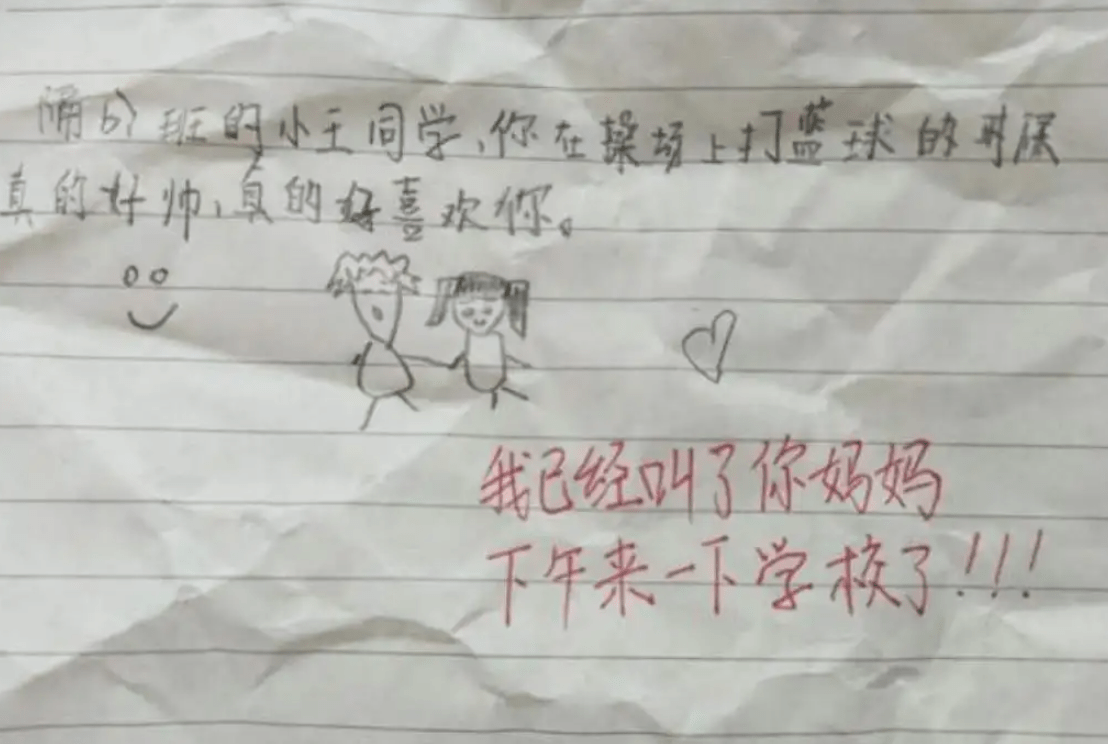 隔6)班的小王同学,你在操场上打蓝球的时候
真的好帅,真的好喜欢你。
我已经叫了你妈妈
下午来一下学校了!!!